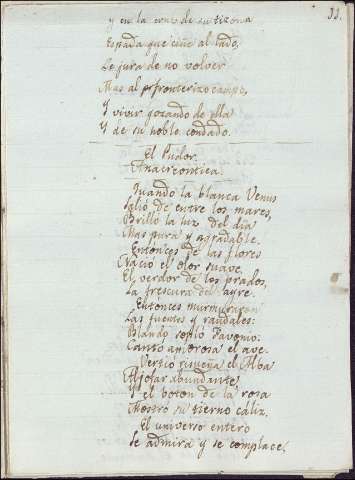 33.
y en la cruz de su tizona
Espada que ciñe al lado,
Le jura de no volver
Mas al fronterizo campo,
Y vivir gozando de ella
Y de su noble condado.
El Pudor.
Anacreontica.
Quando la blanca Venus
Salió de entre los mares,
Brilló la luz del dia
Mas pura y agradable.
Entonces de las flores
Nació el olor suave,
El verdor de los prados,
La frescura del ayre.
Entonces murmuraron
Las fuentes y raudales:
Blando sopló Favonio:
Cantó amorosa el ave.
Vertió risueña el Alba
Aljofar abundante,
Y el boton de la rosa
Mostró su tierno cáliz.
El universo entero
Se admira y se complace,